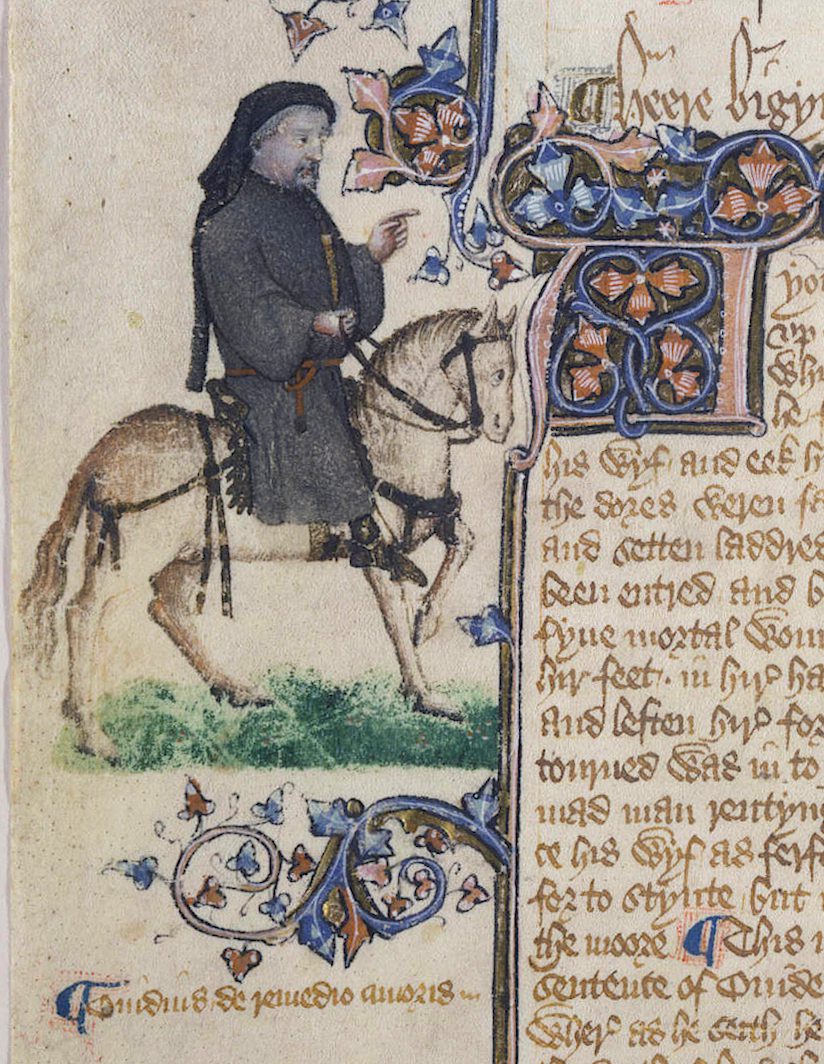 ¶ Heere bigyn
A yon
vp
Whi
he f
his wyf and eek h
the dores weren fa
and setten laddres
been entred and b
fyue mortal woun
hir feet in hir ha
and leften hir for
tourned was in to
mad man rentyng
ce his wyf as ferfo
for to stynte but
the moore ¶ This
sentence of Ouide
Wher as he seith he
¶ Ouidius de remedio amoris